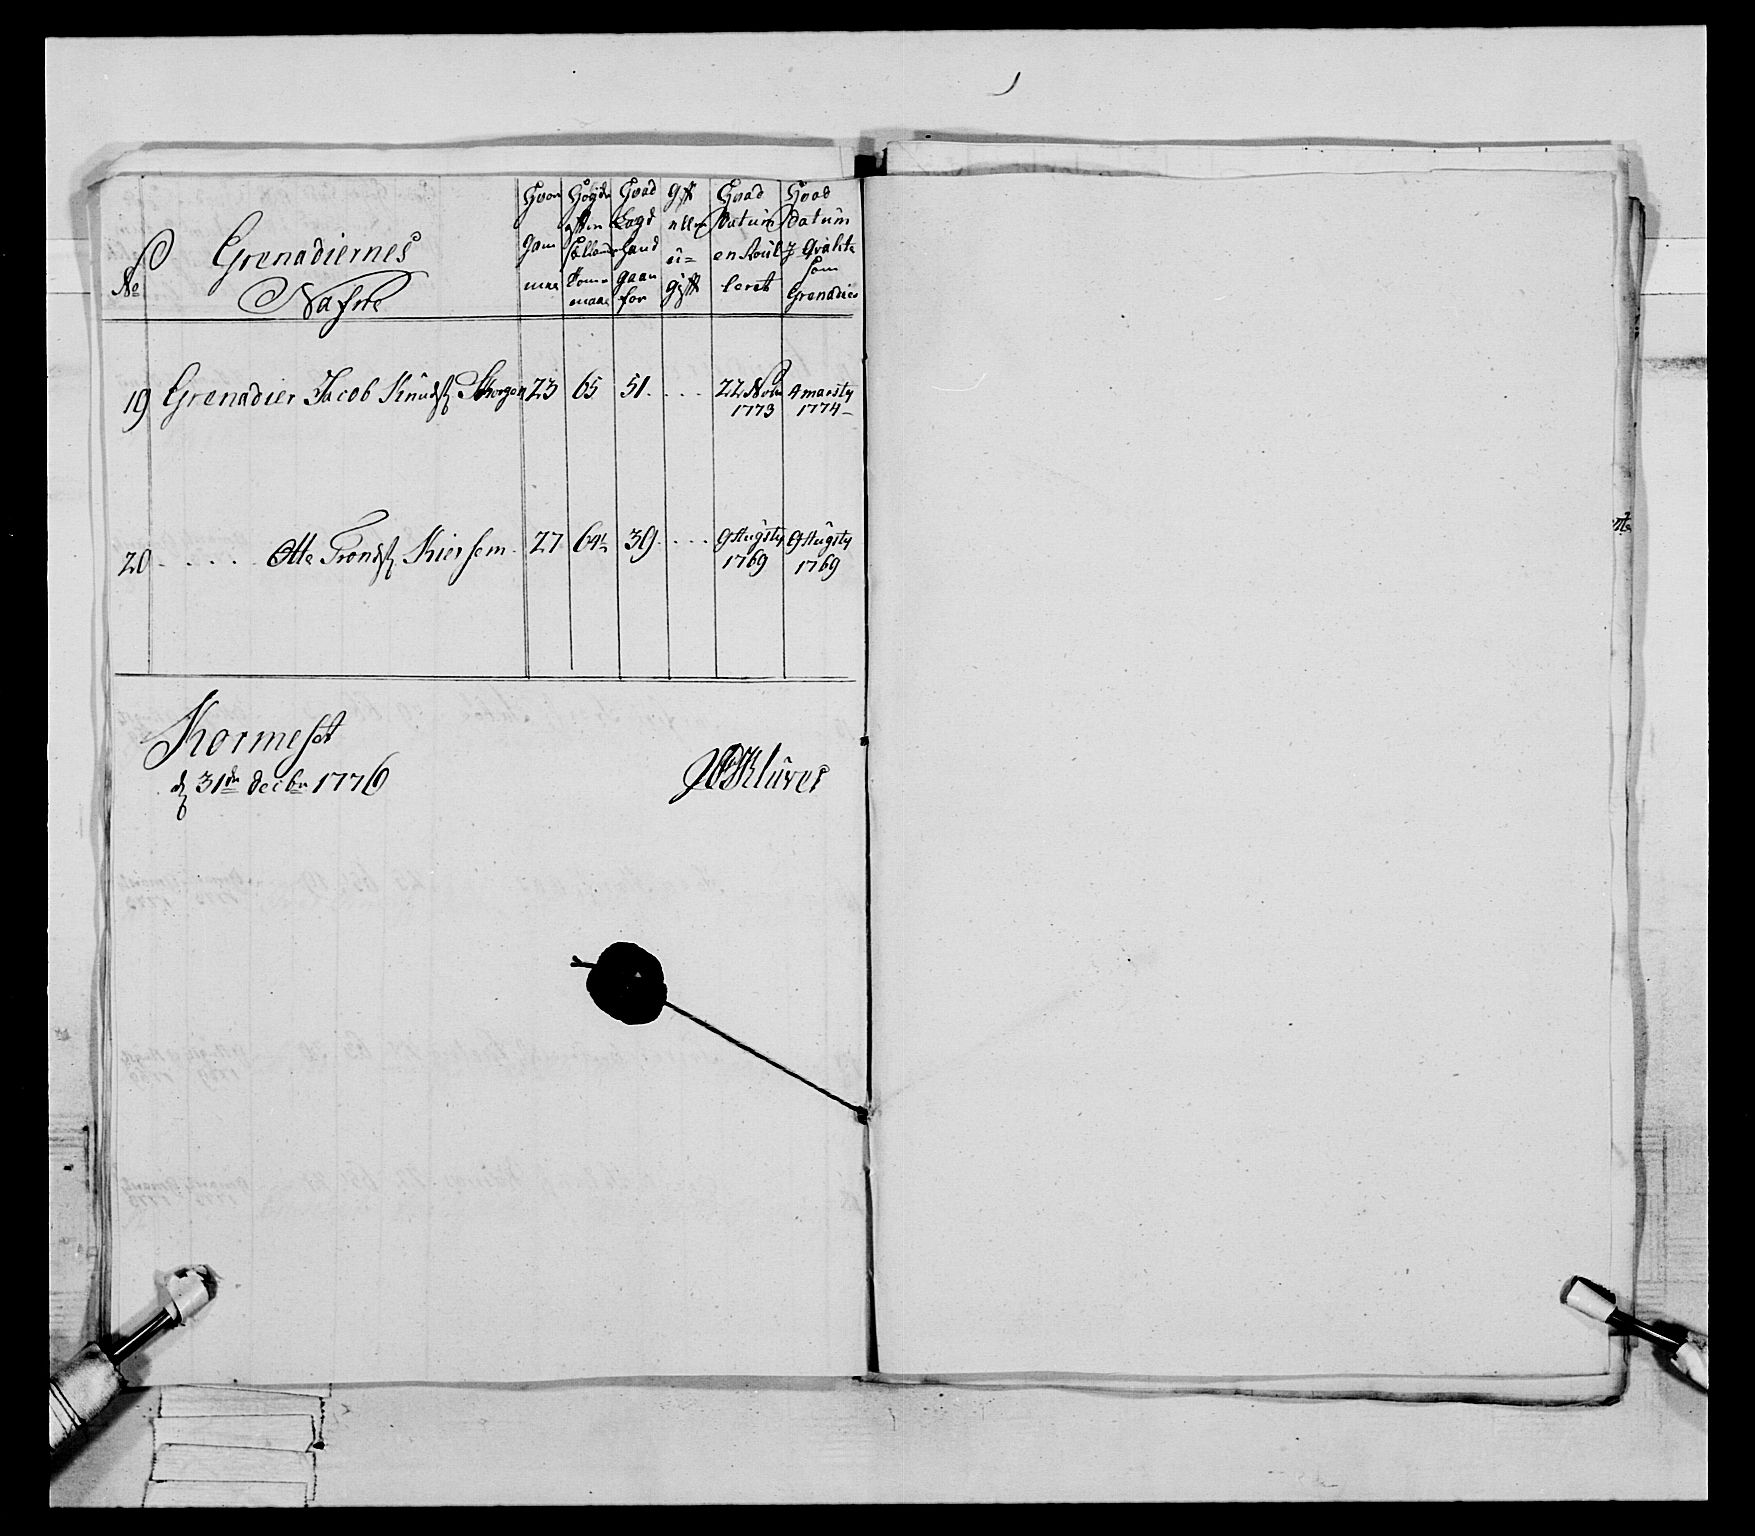 No
Grenadiernes
Nafne
Hvor
gam
mel
Høyde
efter
Kom
maal
Hvad
Lægd
hand
gaar
for
Gift
eller
u=
gift
Hvad
Datum
enRoul
leret
Hvad
Datum
som
Grenadier
19 Grenadier Jacob Knuds Skorgen 23 65 51 . . . 22 Novbr 1773 4 martij 1774
20 . . . . . Otte Tronds Kiersem 27 64½ 39 . . . 9 Augustij 1769 9 Augustij 1769
Kormeset
d 31de Decbr 1776
Klüver